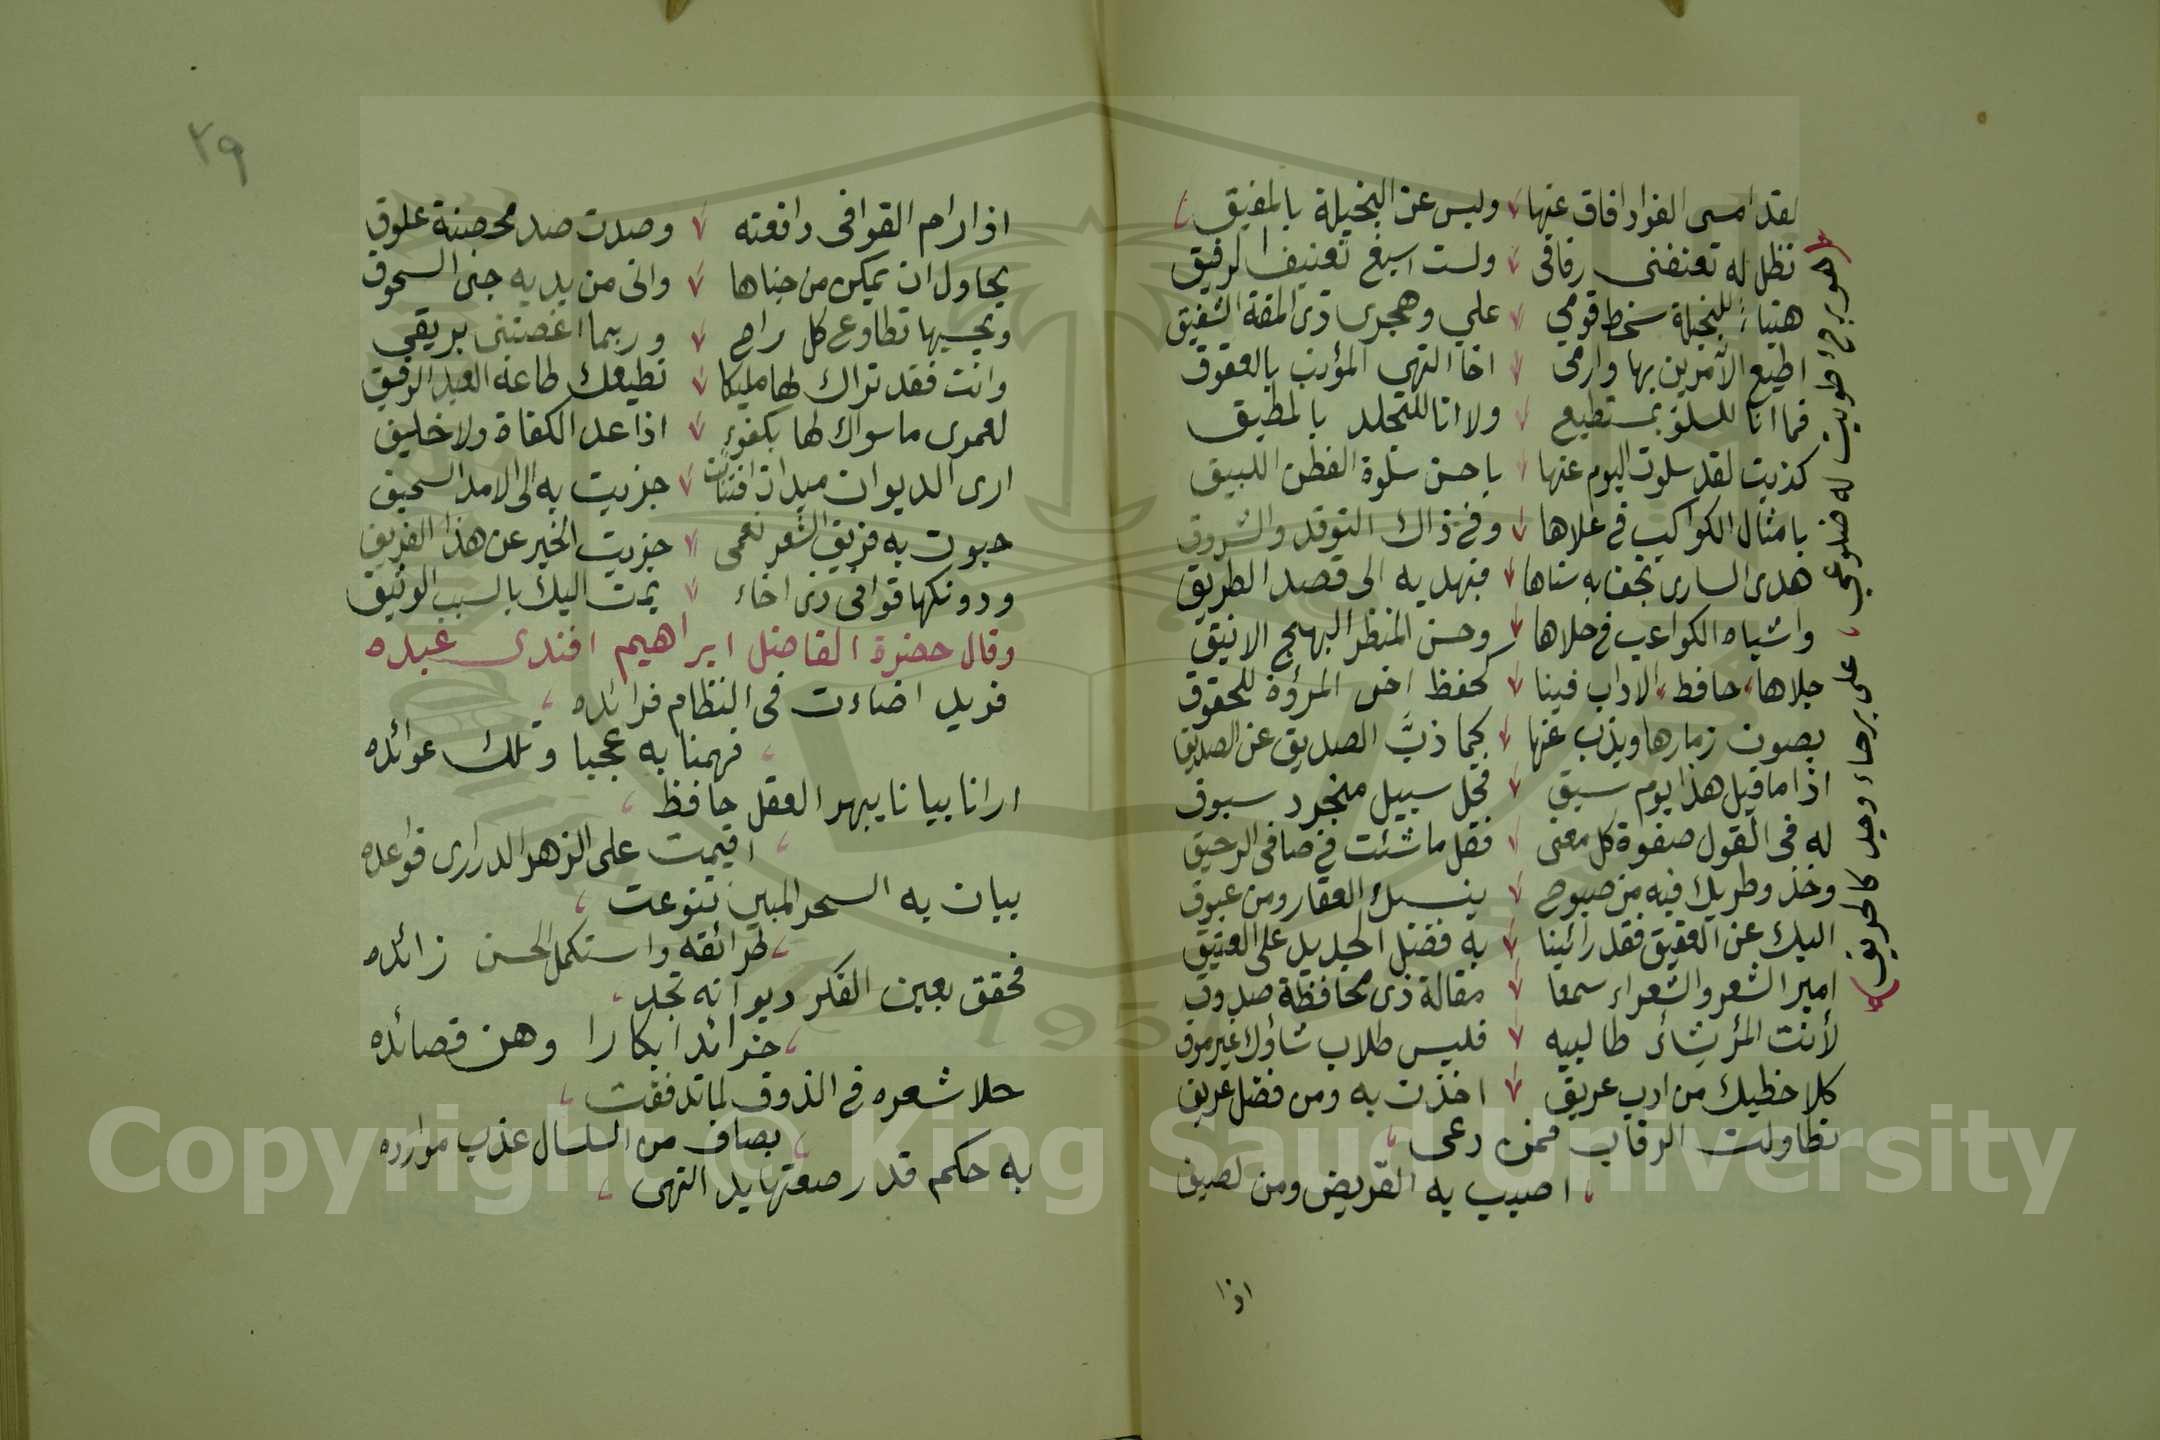 لقد امسى الفؤاد افاق عنها وليس عن البخيلة بالمفيق
تظل له تعنفنى رفاقى ولست اسيغ تعنيف الرفيق
هنياء للبخيلة سخط قومي علي وهجرى ذى المقة الشفيق
اطيع الآمرين بها وارمى اخا النهى المؤنب بالعقوق
فما انا للسلو بمستطيع ولا انا للتجلد بالمطيق
كذبت لقد سلوت اليوم عنها باحسن سلوة الفطن اللبيق
بامثال الكواكب فى علاها وفى ذاك التوقد والشروق
هدى السارى تحف به سناها فتهديه الى قصد الطريق
واشباه الكواعب فى حلاها وحسن المنظر البهيج الانيق
جلاها حافظ الاداب فينا كحفظ اخى المرؤة للحقوق
يصون زمارها ويذب عنها كما ذبَّ الصديق عن الصديق
اذا ما قيل هذا يوم سبق فحل سبيل منجرد سبوق
له فى القول صفوة كل معنى فقل ما شئت فى صافى الرحيق
وخذ وطريك فيه من صبوح ينسيك العقار ومن غبوق
اليك عن العقيق فقد رائينا به فضل الجديد على العتيق
امير الشعر والشعراء سمعا مقالة ذى محافظة صدوق
لأنت المرء شاء طالبيه فليس طلاب شاؤك غير موق
كلا خطيك من ادب عريق اخذت به ومن فضل عريق
تطاولت الرقاب فمن دعى
اصيب به القريض ومن لصيق
اذا
هو برح أطويت له ضلوعى على برحاء وجد كالحريق
٢٩
اذا رام القوافى دافعته وصدت صد محصنة علوق
يحاول ان يمكن من جناها وانى من يديه جنى السحوق
ويحسبها تطاوع كل راح وربما اغصتنى بريقى
وانت فقد تراك لها مليكا تطيعك طاعة العبد الرقيق
لعمرى ما سواك لها بكفوء اذا عد الكفاة ولا خليق
ارى الديوان ميدان افتنان جريت به الى الامد السحيق
حبوت به فريق الشعر نعمى جزيت الخير عن هذا الفريق
ودونكها قوافى ذى اخاء يمت اليك بالسبب الوثيق
وقال حضرة الفاضل ابراهيم افندى عبده
فريد اضاءت فى النظام فرائده
فهمنا به عجبا وتلك عوائده
ارانا بيانا يبهر العقل حافظ
اقيمت على الزهر الدرارى قواعده
بيان به السحر المبين تنوعت
طرائقه واستكمل الحسن زائده
فحقق بعين الفكر ديوانه تجد
خرائدا بكارا وهن قصائده
حلا شعره فى الذوق لما تدفقت
بصاف من السلسال عذب موارده
به حكم قد رصعتها يد النهى